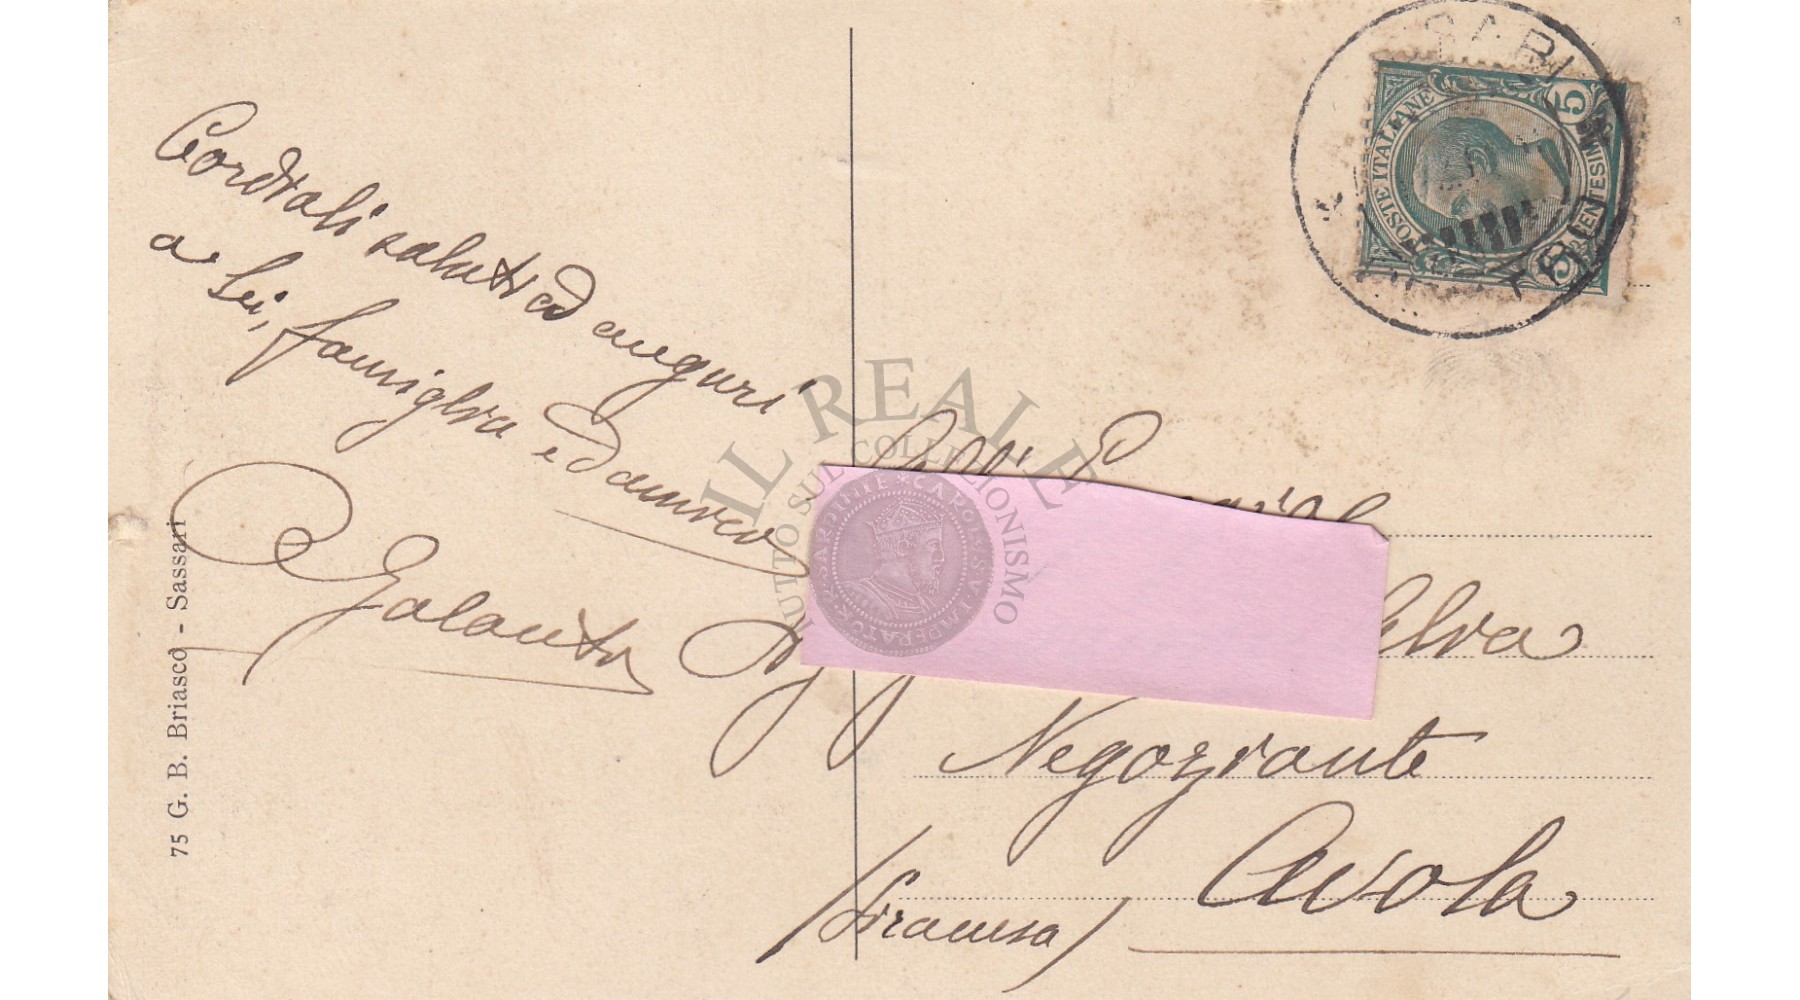 Cordiali saluti ed auguri
a Lei, famiglia ed amico
Galanti
75 G. B. Briasco - Sassari
POSTE ITALIANE
5
CENTESIMI
5
IL REALE
TUTTO SUL COLLEZIONISMO
CAROLVS V IMPERATOR
Negoziante
Avola
(Siracusa)